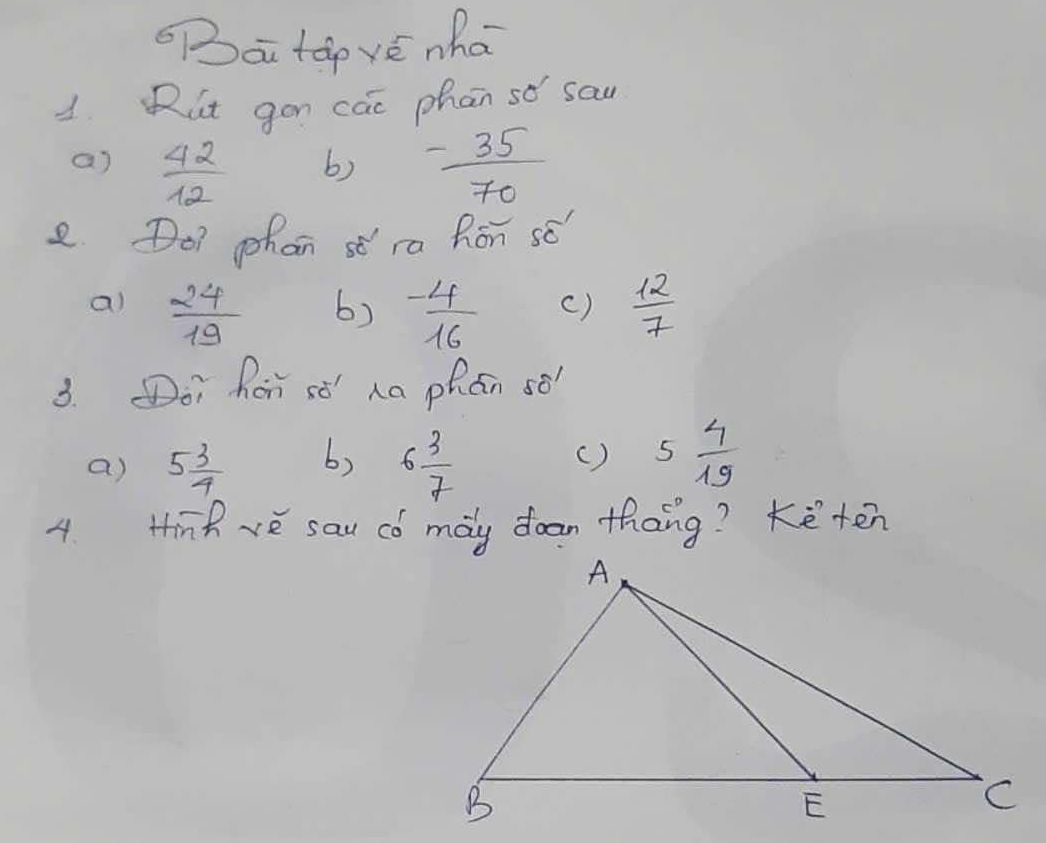 Bài tập về nhà
1. Rút gọn các phân số sau
a) 42/12 b) -35/70
2. Đổi phân số ra hỗn số
a) 24/19 b) -4/16 c) 12/7
3. Đổi hỗn số ra phân số
a) 5 3/4 b) 6 3/7 c) 5 4/19
4. Hình vẽ sau có mấy đoạn thẳng? Kể tên
A
B E C